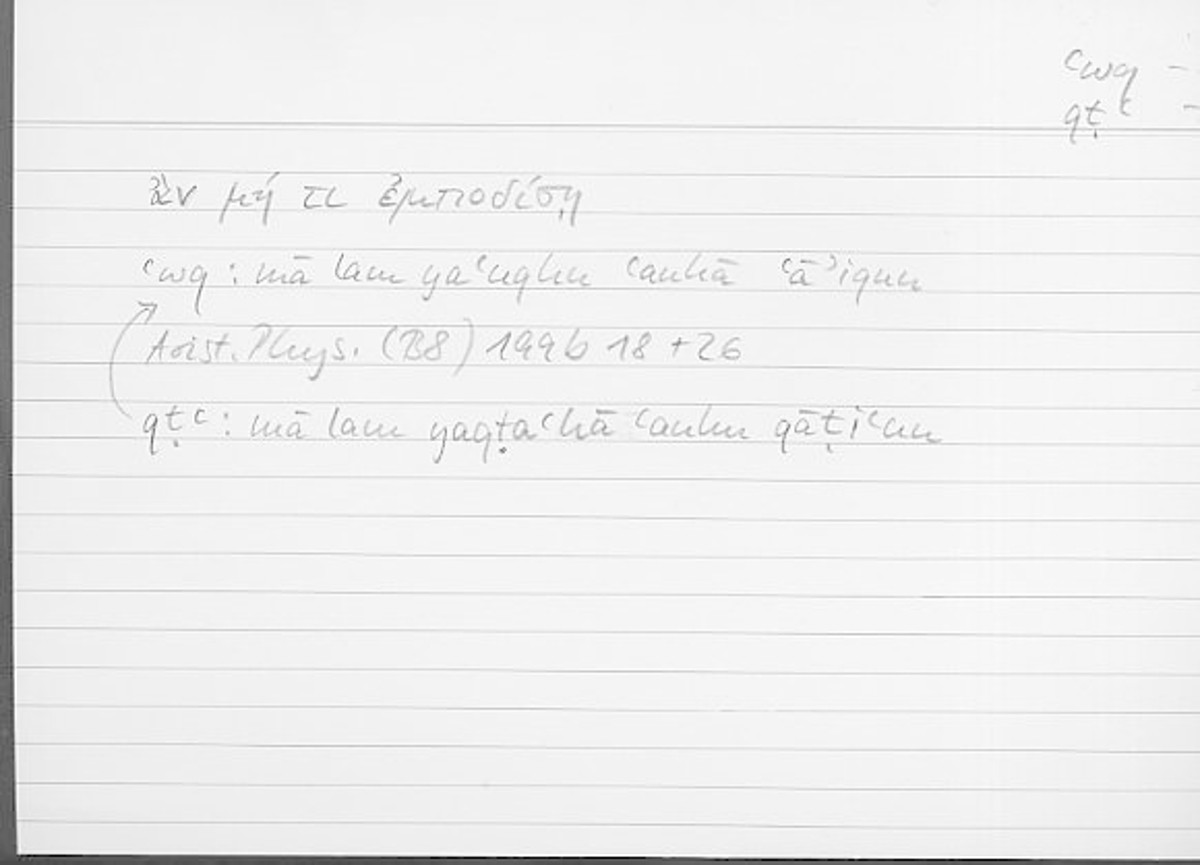 ʿwq –
qṭʿ –
ἂν μή τι ἐμποδίσῃ
ʿwq : mā lam yaʿuqhu ʿanhā ʿāʾiqun
Arist. Phys. (B8) 199b 18 + 26
qṭʿ : mā lam yaqṭaʿhā ʿanhu qāṭiʿun